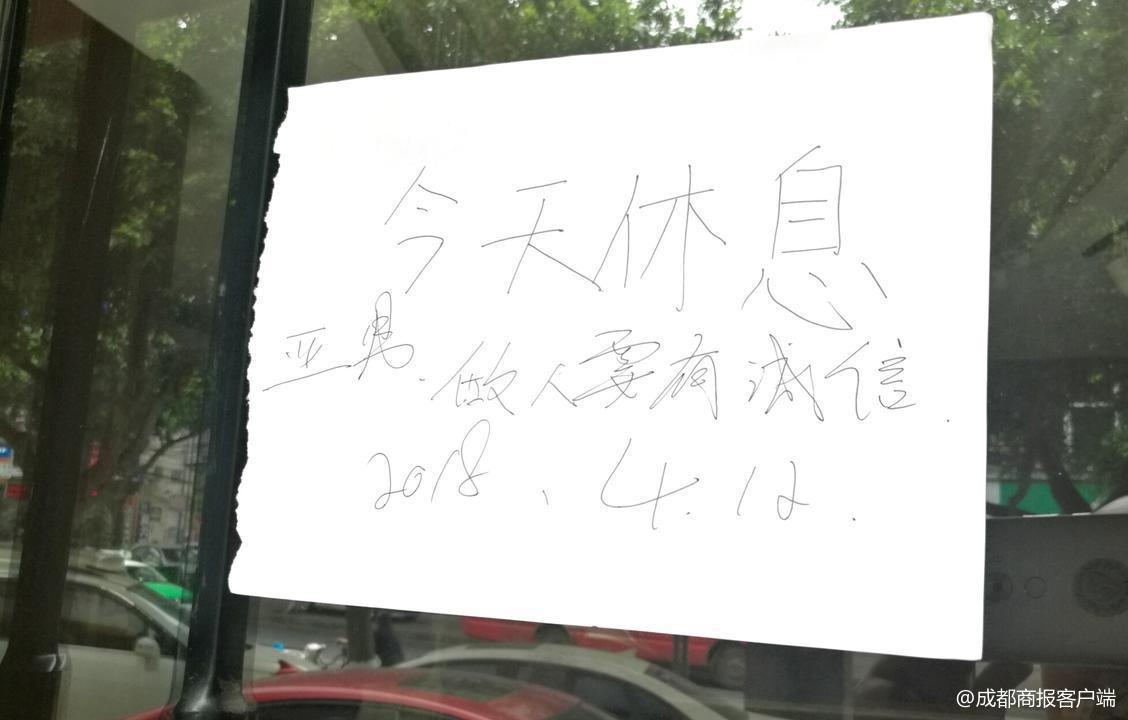 今天休息
亚男.做人要有诚信.
2018、4.12.
@成都商报客户端